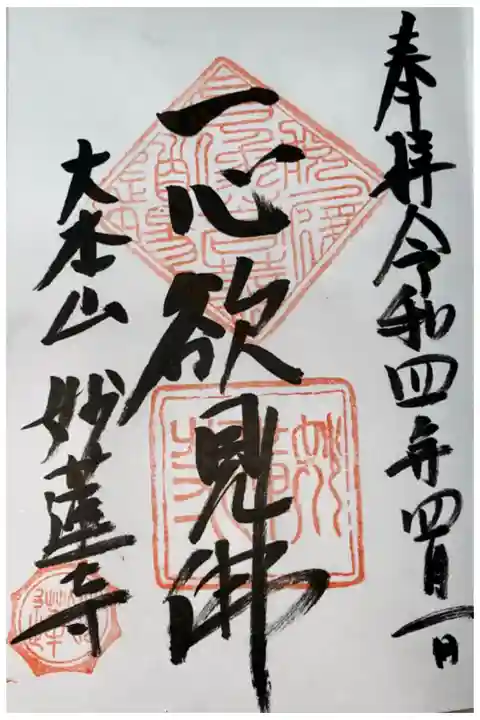 奉拝令和四年四月一日
一心欲見佛
大本山 妙蓮寺